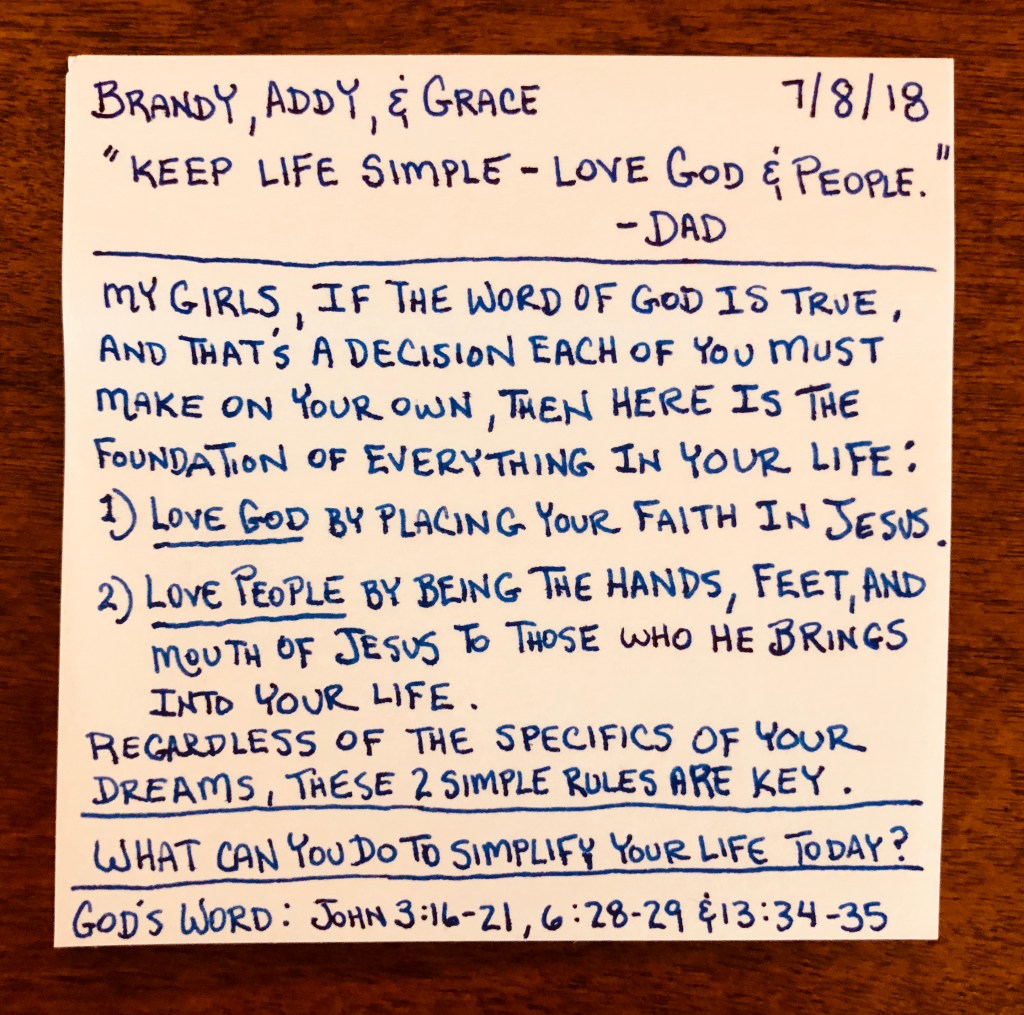 BRANDY, ADDY, & GRACE 7/8/18
"KEEP LIFE SIMPLE - LOVE GOD & PEOPLE."
- DAD
MY GIRLS, IF THE WORD OF GOD IS TRUE,
AND THAT'S A DECISION EACH OF YOU MUST
MAKE ON YOUR OWN, THEN HERE IS THE
FOUNDATION OF EVERYTHING IN YOUR LIFE:
1) LOVE GOD BY PLACING YOUR FAITH IN JESUS.
2) LOVE PEOPLE BY BEING THE HANDS, FEET, AND
MOUTH OF JESUS TO THOSE WHO HE BRINGS
INTO YOUR LIFE.
REGARDLESS OF THE SPECIFICS OF YOUR
DREAMS, THESE 2 SIMPLE RULES ARE KEY.
WHAT CAN YOU DO TO SIMPLIFY YOUR LIFE TODAY?
GOD'S WORD: JOHN 3:16-21, 6:28-29 & 13:34-35